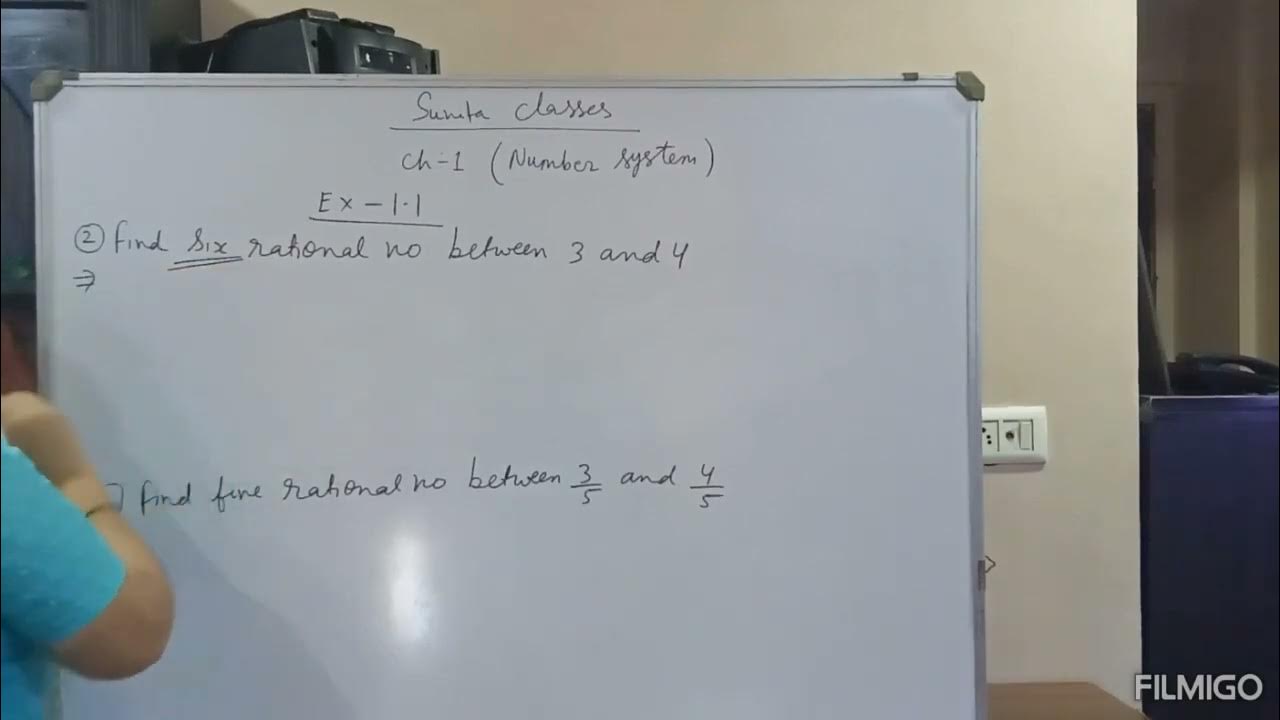 Sunita classes
Ch-1 (Number system)
Ex-1.1
② Find six rational no between 3 and 4
⇒
find five rational no between 3/5 and 4/5
FILMIGO